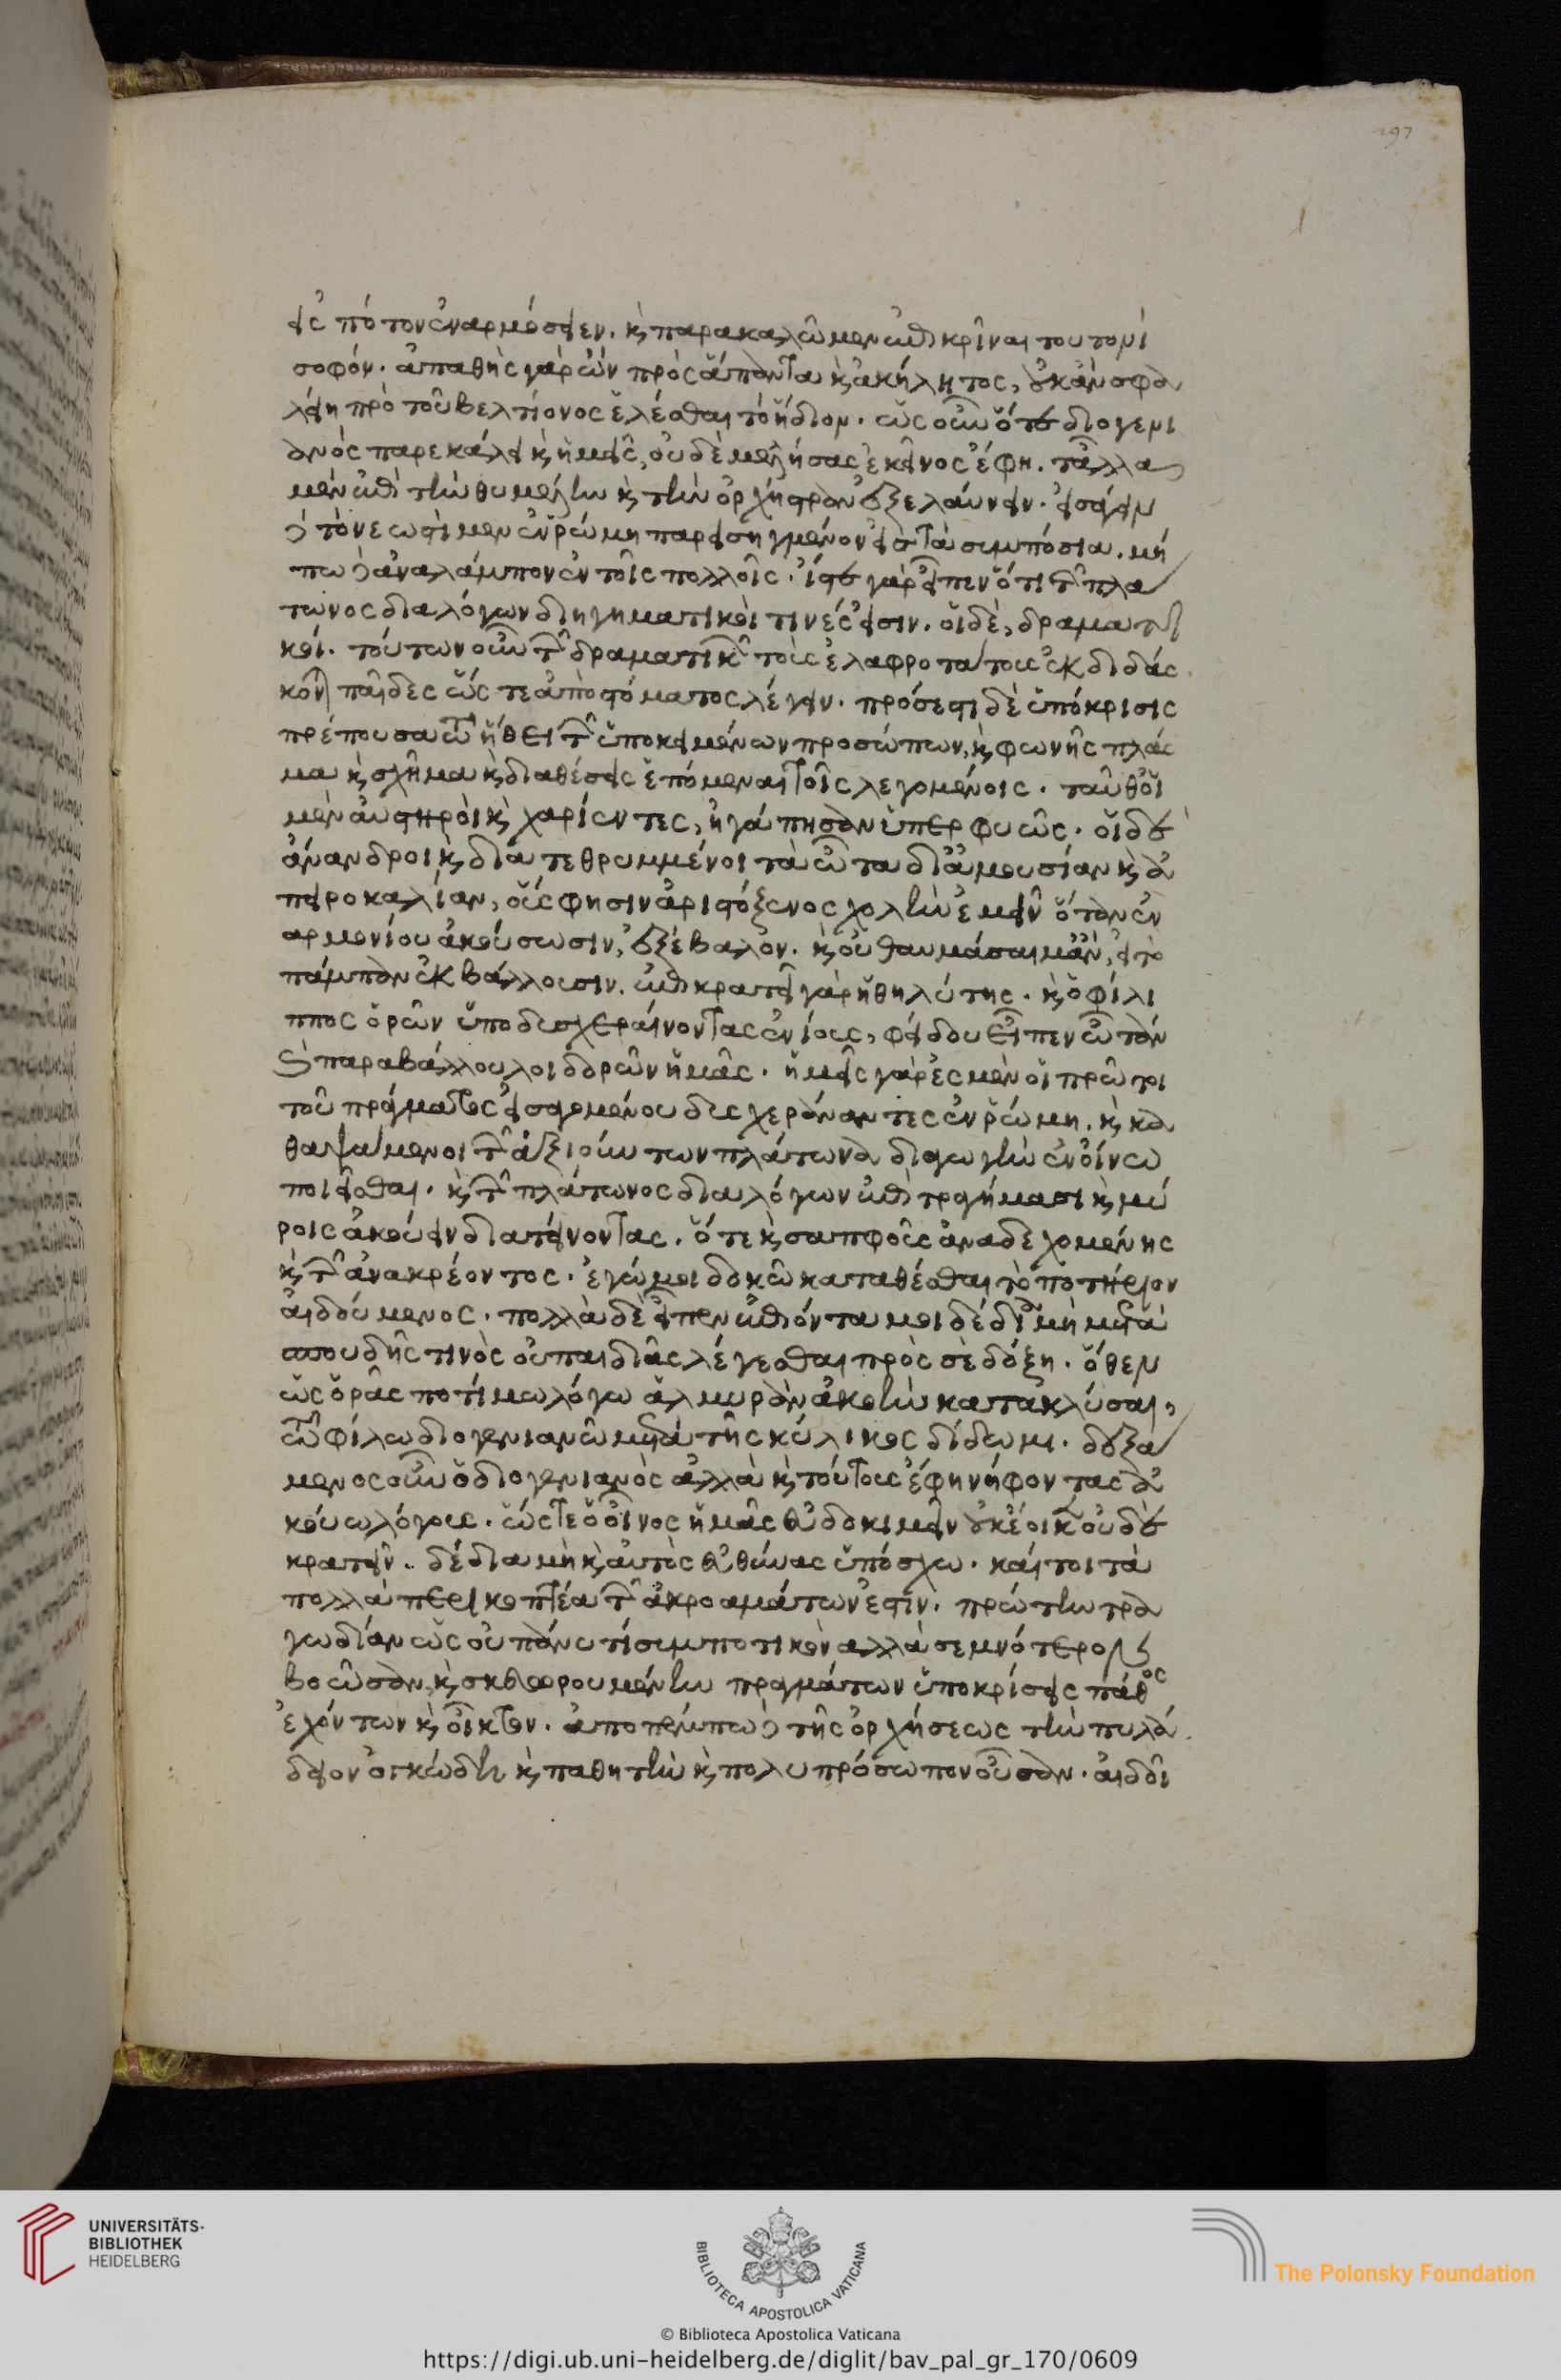 297
εἰς πότον ἐναρμόσειεν. καὶ παρακαλῶμεν ἐπικρῖναι τουτονὶ
σοφόν. ἀπαθὴς γὰρ ὢν πρὸς ἅπαντα καὶ ἀκήλητος, οὐκ ἂν σφα
λείη πρὸ τοῦ βελτίονος ἑλέσθαι τὸ ἥδιον. ὡς οὖν ὅ τε διογενι
ανὸς παρεκάλει καὶ ἡμεῖς, οὐδὲ μελήσας ἐκεῖνος ἔφη. τἄλλα
μὲν ἐπὶ τὴν θυμέλην καὶ τὴν ὀρχήστραν ἐξελαύνειν. εἰσάγειν
δὲ τὸ νεωστὶ μὲν ἐν ῥώμη παρεισηγμένον εἰς τὰ συμπόσια. μή
πω δὲ ἀναλάμπον ἐν τοῖς πολλοῖς. ἴστε γὰρ εἶπεν ὅτι τῶν πλά
τωνος διαλόγων διηγηματικοί τινές εἰσιν. οἱ δὲ, δραματι
κοί. τούτων οὖν τῶν δραματικῶν τοὺς ἐλαφροτάτους ἐκδιδάς
κονται παῖδες ὥς τε ἀπὸ στόματος λέγειν. πρόσεστι δὲ ὑπόκρισις
πρέπουσα τῶ ἤθει τῶν ὑποκειμένων προσώπων, καὶ φωνῆς πλάς
μα καὶ σχῆμα καὶ διαθέσεις ἑπόμεναι τοῖς λεγομένοις. ταῦθ' οἱ
μὲν αὐστηροὶ καὶ χαρίεντες, ἠγάπησαν ὑπερφυῶς. οἱ δὲ
ἄνανδροι καὶ διατεθρυμμένοι τὰ ὦτα δι' ἀμουσίαν καὶ ἀ
πειροκαλίαν, οὕς φησιν ἀριστόξενος χολὴν ἐμεῖν ὅταν ἐν
αρμονίου ἀκούσωσιν, ἐξέβαλον. καὶ οὐ θαυμάσαιμ' ἂν, εἰ τὸ
πάμπαν ἐκβάλλουσιν. ἐπικρατεῖ γὰρ ἡ θηλύτης. καὶ ὁ φίλι
ππος ὁρῶν ὑποδυσχεραίνοντας ἐνίους, φείδου εἶπεν ὦ τὰν
καὶ παραβάλλου λοιδορῶν ἡμᾶς. ἡμεῖς γάρ ἐσμεν οἱ πρῶτοι
τοῦ πράγματος εἰσαγομένου δυσχεράναντες ἐν ῥώμη. καὶ κα
θαψάμενοι τῶν ἀξιούντων πλάτωνα διαγωγὴν ἐν οἴνω
ποιεῖσθαι. καὶ τῶν πλάτωνος διαλόγων ἐπὶ τραγήμασι καὶ μύ
ροις ἀκούειν διατείνοντας. ὅτε καὶ σαπφοῦς ἀναδεχομένης
καὶ τῶν ἀνακρέοντος. ἐγώ μοι δοκῶ καταθέσθαι τὸ ποτήριον
αἰδούμενος. πολλὰ δὲ εἰπεῖν ἐπιόντα μοι δέδια μὴ μετὰ
σπουδῆς τινὸς οὐ παιδιᾶς λέγεσθαι πρὸς σὲ δόξη. ὅθεν
ὡς ὁρᾶς ποτίμω λόγω ἁλμυρὰν ἀκοὴν κατακλύσαι,
τῶ φίλω διογενιανῶ μετὰ τῆς κύλικος δίδωμι. δεξά
μενος οὖν ὁ διογενιανὸς ἀλλὰ καὶ τούτους ἔφη νήφοντας ἀ
κούω λόγους. ὥς τε ὁ οἶνος ἡμᾶς εὐδοκιμεῖν οὐκ ἔοικεν οὐδὲ
κρατεῖν. δέδια μὴ καὶ αὐτὸς εὐθύνας ὑπόσχω. καί τοι τὰ
πολλὰ περικοπτέα τῶν ἀκροαμάτων ἐστίν. πρώτην τρα
γωδίαν ὡς οὐ πάνυ τί συμποτικὸν ἀλλὰ σεμνότερον
βοῶσαν, καὶ σκευωρουμένην πραγμάτων ὑποκρίσεις πάθος
ἐχόντων καὶ οἶκτον. ἀποπέμπω δὲ τῆς ὀρχήσεως τὴν πυλά
δειον ὀγκώδη καὶ παθητὴν καὶ πολυπρόσωπον οὖσαν. αἰδοῖ
UNIVERSITÄTS-
BIBLIOTHEK
HEIDELBERG
BIBLIOTECA APOSTOLICA VATICANA
© Biblioteca Apostolica Vaticana
The Polonsky Foundation
https://digi.ub.uni-heidelberg.de/diglit/bav_pal_gr_170/0609